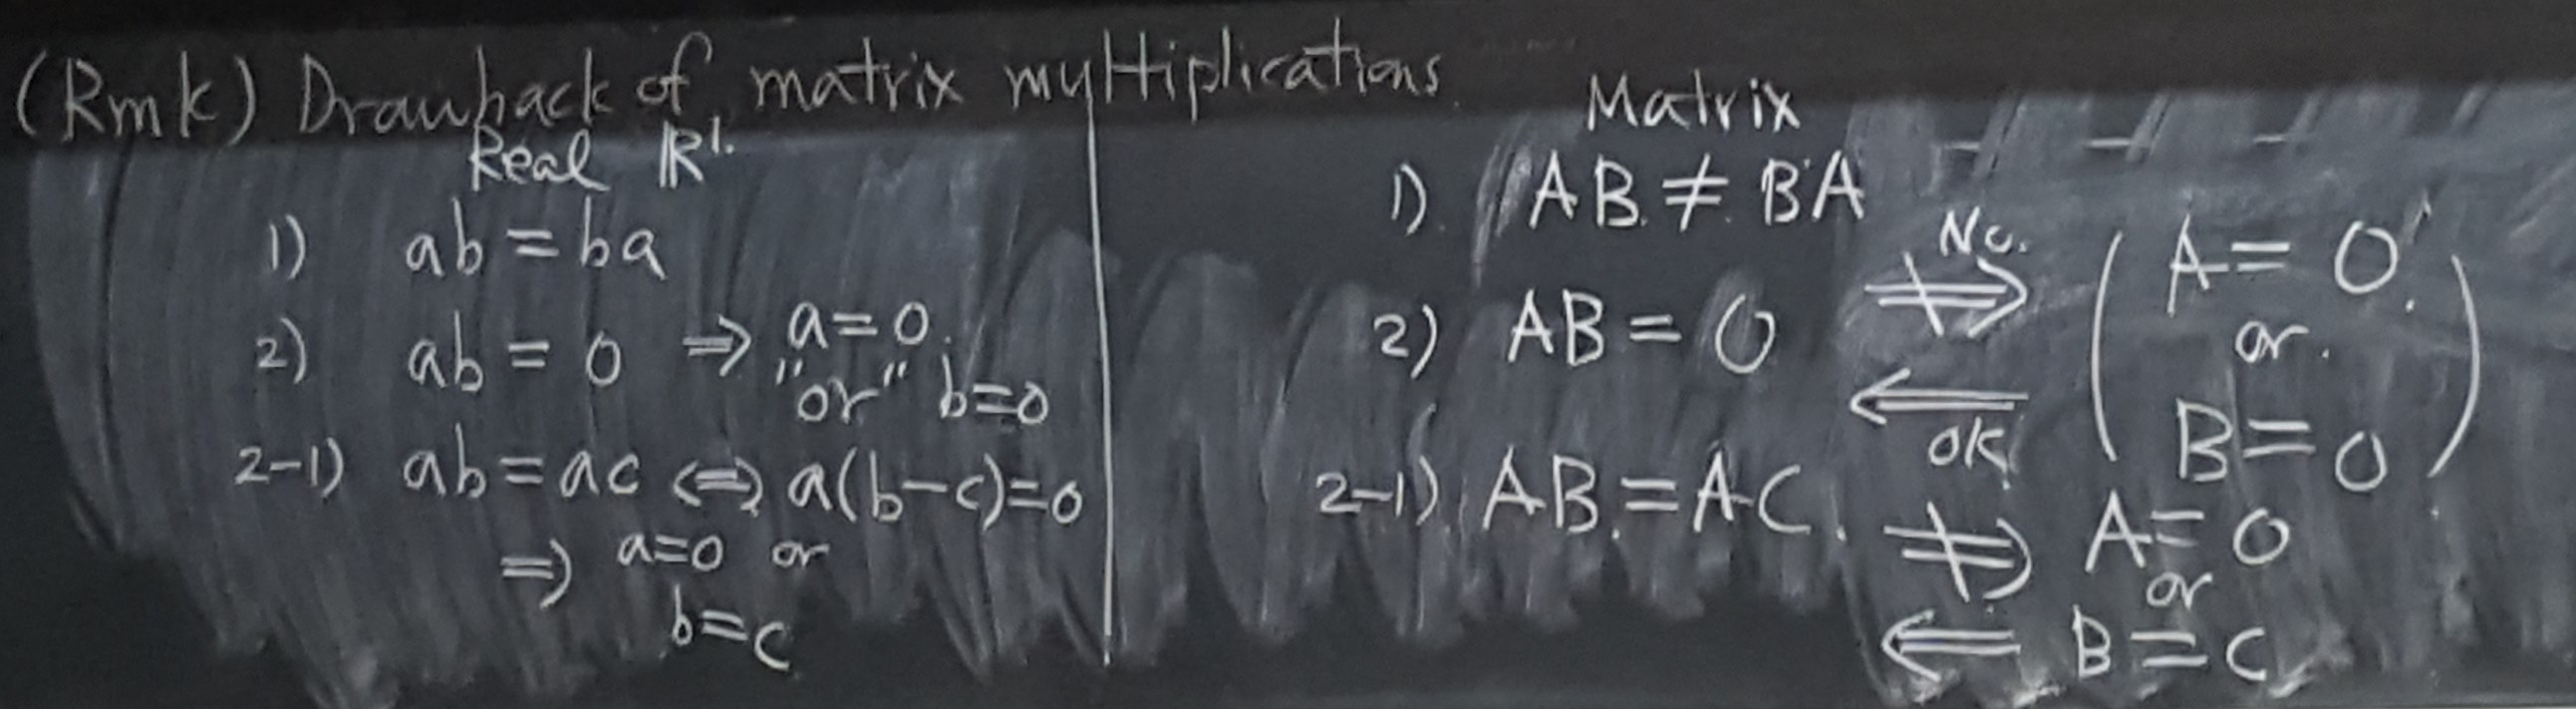 (Rmk) Drawback of matrix multiplications.
Real ℝ¹.
1) ab = ba
2) ab = 0 ⇒ a=0. "or" b=0
2-1) ab = ac ⇔ a(b-c)=0
⇒ a=0 or
b=c
Matrix
1). AB ≠ BA
2) AB = O ⇏ No. ⇐ ok ( A = O. or. B = O )
2-1) AB = AC. ⇏ A = O
or
⇐ B = C